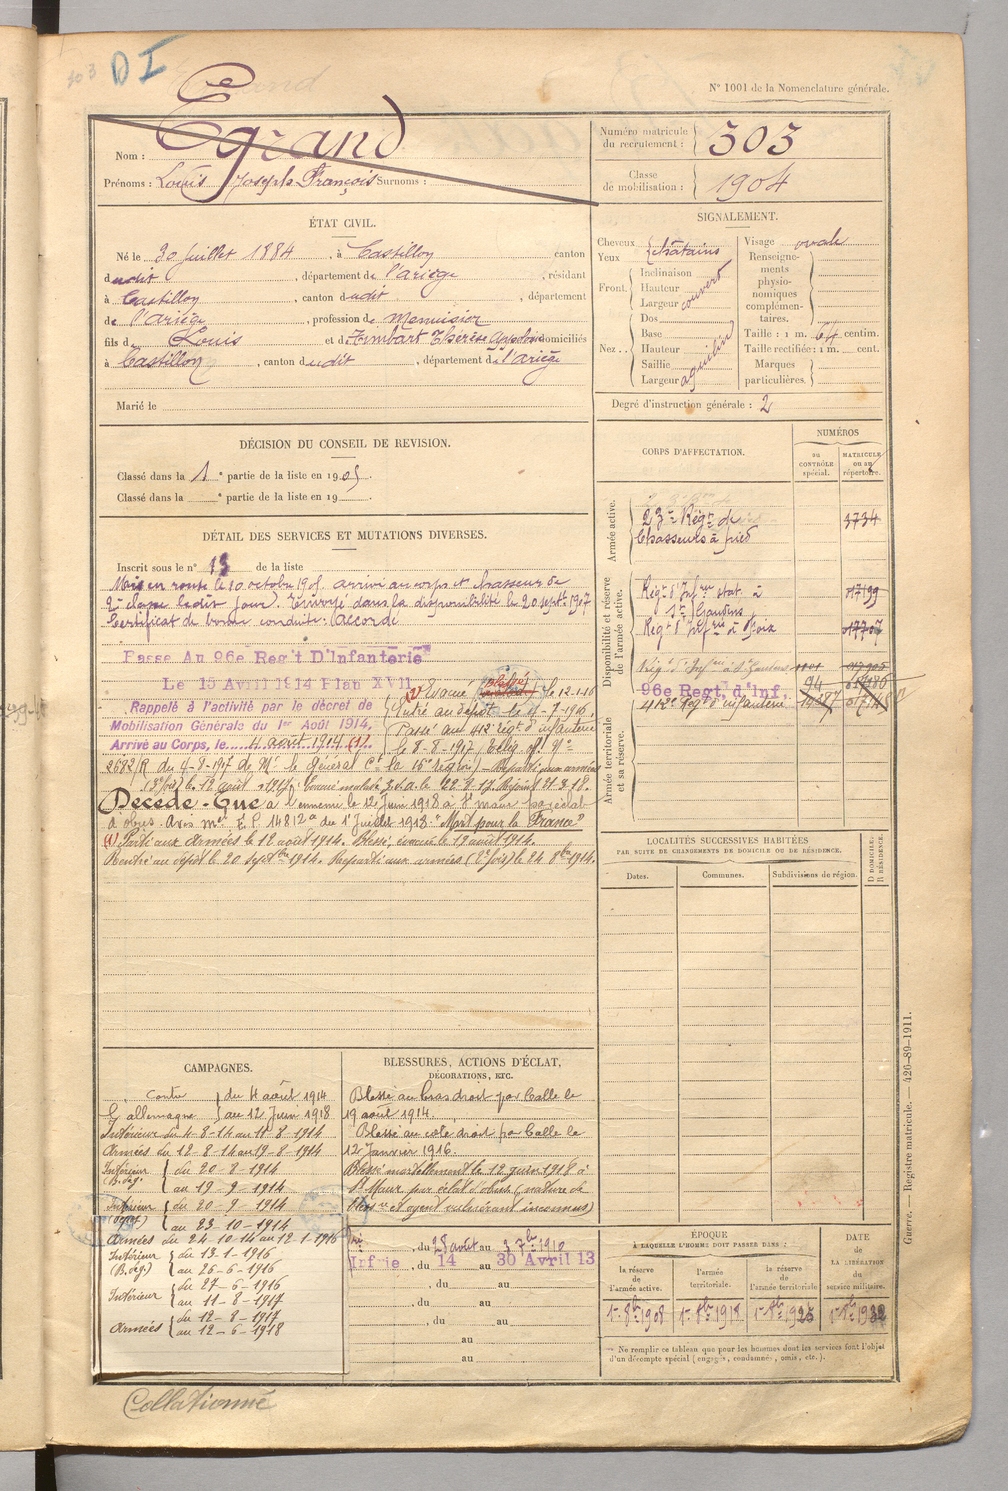 303 D I
N° 1001 de la Nomenclature générale.
Nom : Egrand
Prénoms : Louis Joseph François Surnoms :
Numéro matricule du recrutement : 303
Classe de mobilisation : 1904
ÉTAT CIVIL.
Né le 30 Juillet 1884, à Castillon canton
dudit, département de l'ariège, résidant
à Castillon, canton dudit, département
de l'ariège, profession de Menuisier
fils de Louis et de Thérèse domiciliés
à Castillon, canton dudit, département de l'ariège
Marié le
SIGNALEMENT.
Cheveux châtains
Yeux
Front. Inclinaison
Hauteur
Largeur couvert
Nez.. Dos
Base
Hauteur
Saillie
Largeur aquilin
Visage ovale
Renseignements physionomiques complémentaires.
Taille : 1 m. 64 centim.
Taille rectifiée : 1 m. cent.
Marques particulières.
Degré d'instruction générale : 2
DÉCISION DU CONSEIL DE REVISION.
Classé dans la 1e partie de la liste en 1905
Classé dans la e partie de la liste en 19
DÉTAIL DES SERVICES ET MUTATIONS DIVERSES.
Inscrit sous le n° 13 de la liste
Mis en route le 10 octobre 1905 arrivé au corps et chasseur de
2e classe ledit jour. Envoyé dans la disponibilité le 20 sept. 1907
Certificat de bonne conduite : Accordé
Passé Au 96e Reg't D'Infanterie
Le 15 Avril 1914 Plan XVII
Rappelé à l'activité par le décret de
Mobilisation Générale du 1er Août 1914.
Arrivé au Corps, le 4 août 1914 (1)
Evacué blessé le 12-1-16
Entré au dépôt le 4-7-1916.
Passé au 412e régt d'infanterie
le 8-8-1917
2682/R du 4-8-1917 de Mr le Général Ct la 16e région) - Reparti aux armées
(3e fois) le 12 août 1917. Evacué malade le 22-2-17. Rejoint 21-3-18.
Décédé - Tué à l'ennemi le 12 Juin 1918 à St Maur par éclat
d'obus. Avis mel E.P. 14812 du 1er Juillet 1918. "Mort pour la France"
(1) Parti aux armées le 12 août 1914. Blessé, évacué le 19 août 1914.
Rentré au dépôt le 20 septbre 1914. Reparti aux armées (2e fois) le 24 8bre 1914.
CORPS D'AFFECTATION.
NUMÉROS
au CONTRÔLE spécial.
MATRICULE ou au répertoire.
Armée active.
23e Régt de Chasseurs à pied 3734
Disponibilité et réserve de l'armée active.
Régt d'Infrie stat. à St Gaudens 017199
Régt d'Infrie à Foix 017707
Régt d'Infrie à St Gaudens
96e Regt. d'Inf.
412e Régt d'infanterie
Armée territoriale et sa réserve.
LOCALITÉS SUCCESSIVES HABITÉES
PAR SUITE DE CHANGEMENTS DE DOMICILE OU DE RÉSIDENCE.
Dates. Communes. Subdivisions de région. D DOMICILE. R RÉSIDENCE.
CAMPAGNES.
Contre l'allemagne du 4 août 1914
au 12 Juin 1918
Intérieur du 4-8-14 au 11-8-1914
Armées du 12-8-14 au 19-8-1914
Intérieur (B. de g.) du 20-8-1914
au 19-9-1914
Intérieur (dépôt) du 20-9-1914
au 23-10-1914
Armées du 24-10-14 au 12-1-1916
Intérieur (B. de g.) du 13-1-1916
au 26-6-1916
Intérieur du 27-6-1916
au 11-8-1917
Armées du 12-8-1917
au 12-6-1918
BLESSURES, ACTIONS D'ÉCLAT,
DÉCORATIONS, ETC.
Blessé au bras droit par balle le
19 août 1914.
Blessé au côté droit par balle le
12 Janvier 1916.
Blessé mortellement le 12 juin 1918 à
St Maur par éclat d'obus (nature de
bless re et agent vulnérant inconnus)
du 28 août au 3 7bre 1910
Infrie du 14 au 30 Avril 13
, du au
, du au
, du au
au
au
ÉPOQUE
À LAQUELLE L'HOMME DOIT PASSER DANS :
la réserve de l'armée active.
l'armée territoriale.
la réserve de l'armée territoriale
DATE de LA LIBÉRATION du service militaire.
1er 8bre 1908
1er 8bre 1918
1er 8bre 1925
1er 8bre 1932
Ne remplir ce tableau que pour les hommes dont les services font l'objet
d'un décompte spécial (engagés, condamnés, omis, etc.).
Guerre. — Registre matricule. — 426-89-1911.
Collationné